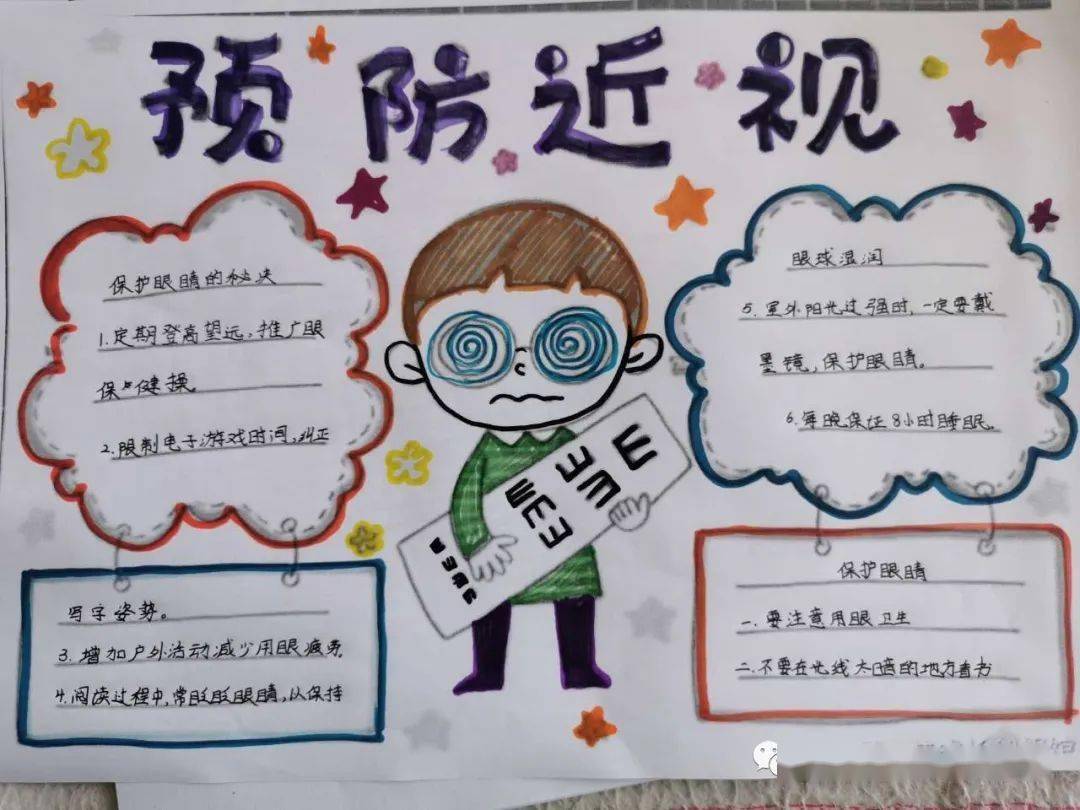 预防近视
保护眼睛的秘决
1.定期登高望远,推广眼
保与健操
2.限制电子游戏时间,纠正
写字姿势。
3.增加户外活动减少用眼疲劳
4.阅读过程中,常眨眨眼睛,以保持
眼球湿润
5.室外阳光过强时,一定要戴
墨镜,保护眼睛。
6.每晚保证8小时睡眠.
保护眼睛
一.要注意用眼卫生
二.不要在光线太暗的地方看书